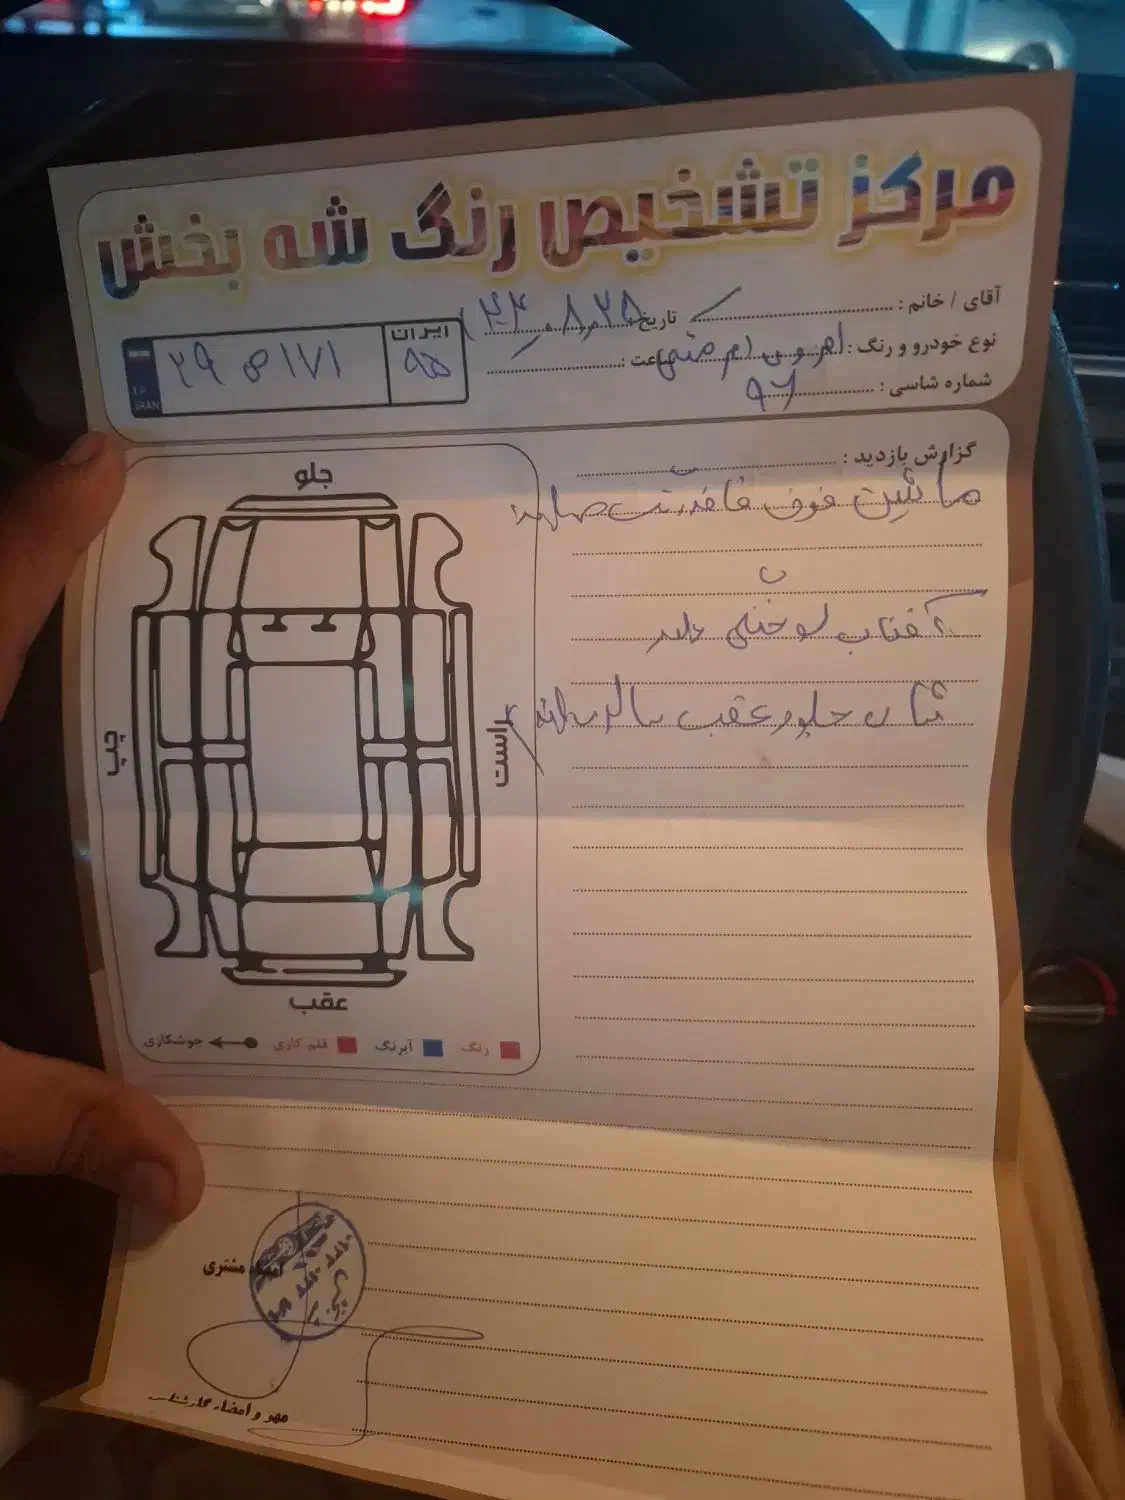 مرکز تشخیص رنگ شه بخش
آقای / خانم :
تاریخ :
نوع خودرو و رنگ :
ساعت :
شماره شاسی : ۹۶
ایران
۹۵
۲۹ ص ۱۷۱
I.R.
IRAN
گزارش بازدید :
ماشین فوق فاقد رنگ میباشد
آفتاب سوختگی دارد
شاسی جلو و عقب سالم میباشد
جلو
چپ
راست
عقب
رنگ
آبرنگ
قلم کاری
جوشکاری
امضاء مشتری
مهر و امضاء کارشناس